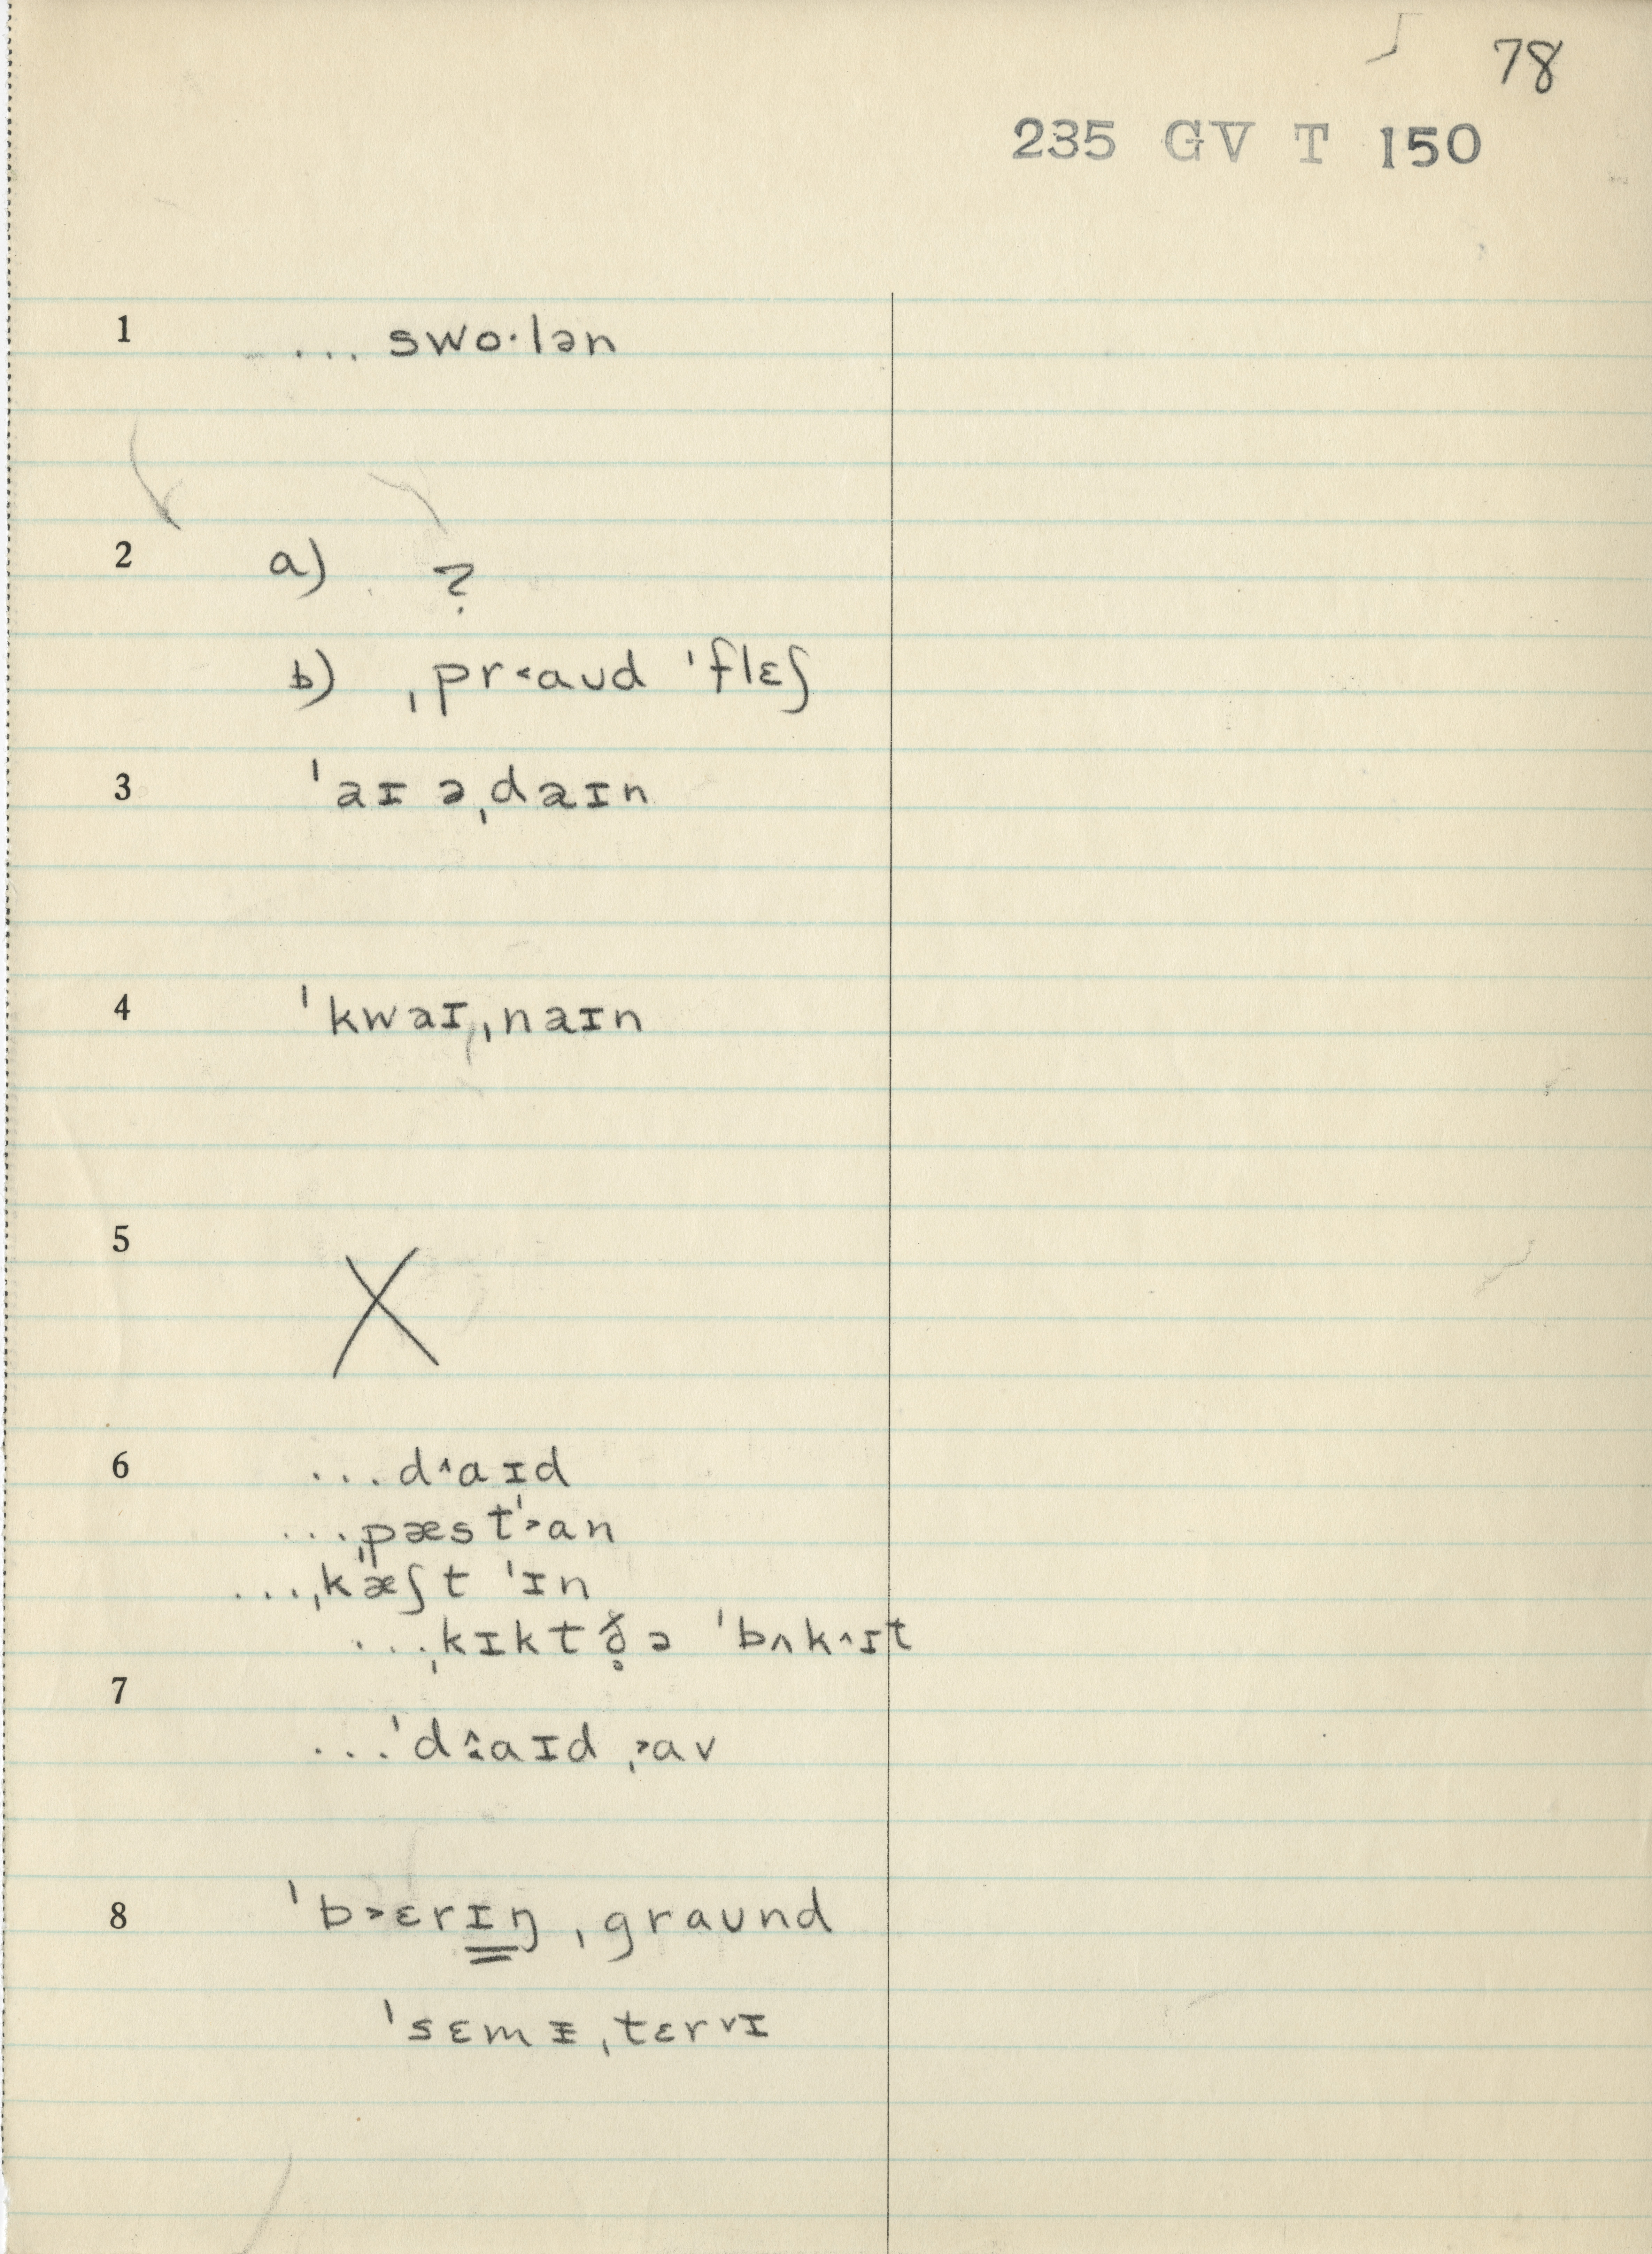 78
235 GV T 150
1 ... swo·lən
2 a) ?
b) ˌpr˂aʊd ˈflɛʃ
3 ˈaɪ əˌdaɪn
4 ˈkwaɪˌnaɪn
5 X
6 ...d˄aɪd
...ˌpæst ˈ˃an
...ˌkæʃt ˈɪn
...ˌkɪkt ð̥ə ˈbʌk˄ɪt
7
...ˈd˄·aɪd ˌ˃av
8 ˈb˃ɛrɪŋ ˌgraʊnd
ˈsɛmɪˌtɛr˅ɪ